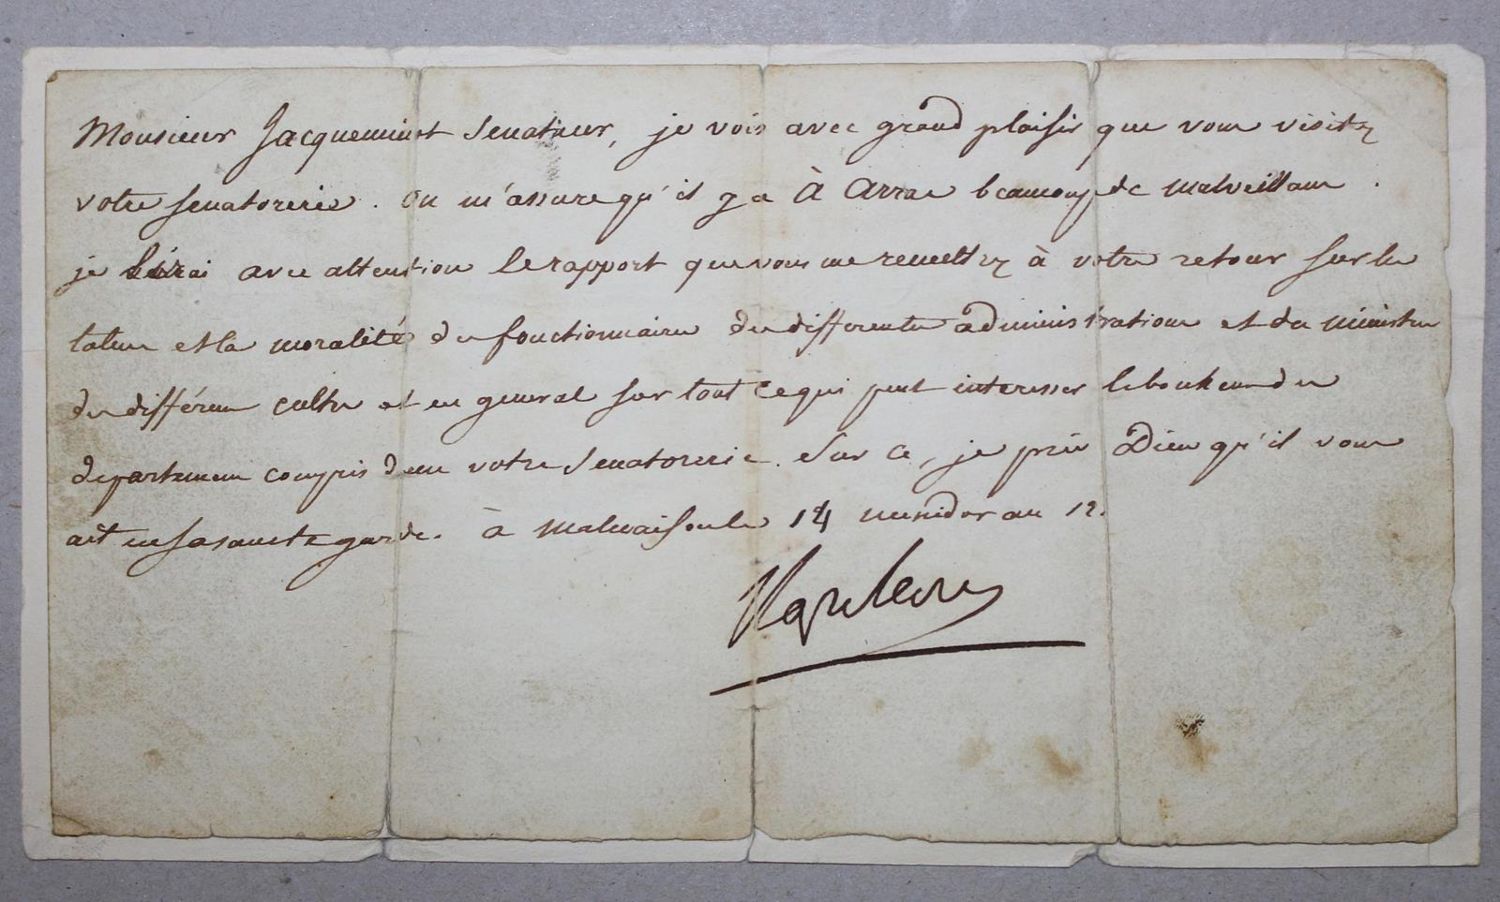 Monsieur Jacqueminot Senateur, je vois avec grand plaisir que vous visitez
votre senatorerie. On m'assure qu'il y a à Arras beaucoup de malveillans.
je lirai avec attention le rapport que vous me remettrez à votre retour sur les
talens et la moralité des fonctionnaires des differentes administrations et des ministres
des différens cultes et en general sur tout ce qui peut interesser le bonheur des
departemens compris dans votre Senatorerie. Sur ce, je prie Dieu qu'il vous
ait en sa sainte garde. à Malmaison le 14 messidor an 12.
Napoleon